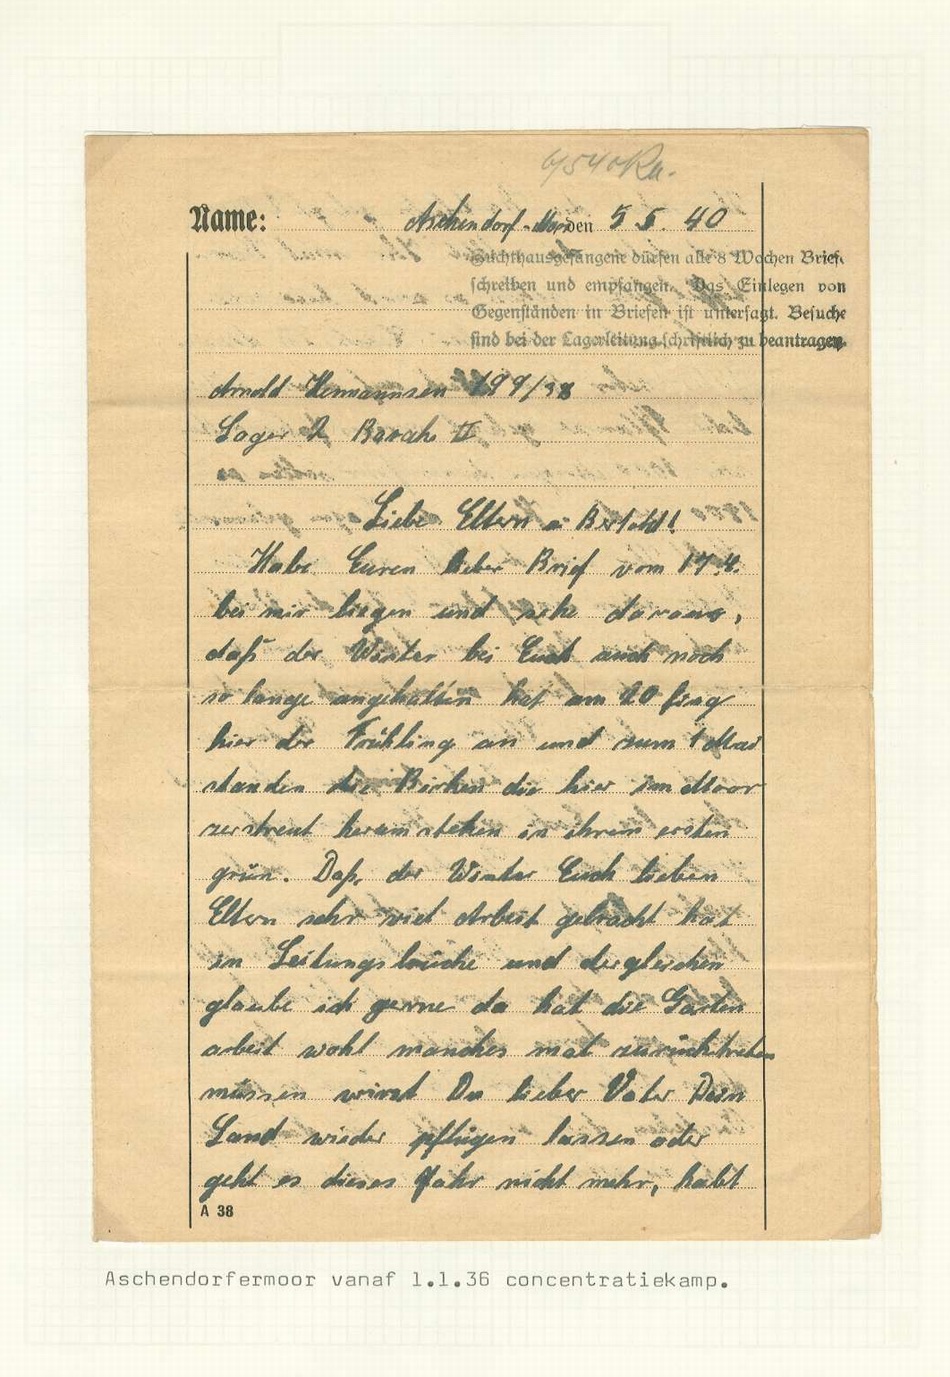 Name: Aschendorf-Moor den 5 5. 40
Zuchthausgefangene dürfen alle 8 Wochen Brief.
schreiben und empfangen. Das Einlegen von
Gegenständen in Briefen ist untersagt. Besuche
sind bei der Lagerleitung schriftlich zu beantragen.
Arnold Hermannsen 199/38
Lager 2 Barake II
Liebe Eltern u Bertold!
Habe Euren lieber Brief vom 17.4.
bei mir liegen und sehe daraus,
daß der Winter bei Euch auch noch
so lange angehalten hat am 20 fing
hier der Frühling an und zum 1 Mai
standen die Birken die hier im Moor
zerstreut herumstehen in ihrem ersten
grün. Daß der Winter Euch lieben
Eltern sehr viel Arbeit gebracht hat
an Leitungsbrüche und dergleichen
glaube ich gerne da hat die Garten
arbeit wohl manches mal zurücktreten
müssen wirst Du lieber Vater Dein
Land wieder pflügen lassen oder
geht es dieses Jahr nicht mehr, habt
A 38
Aschendorfermoor vanaf 1.1.36 concentratiekamp.